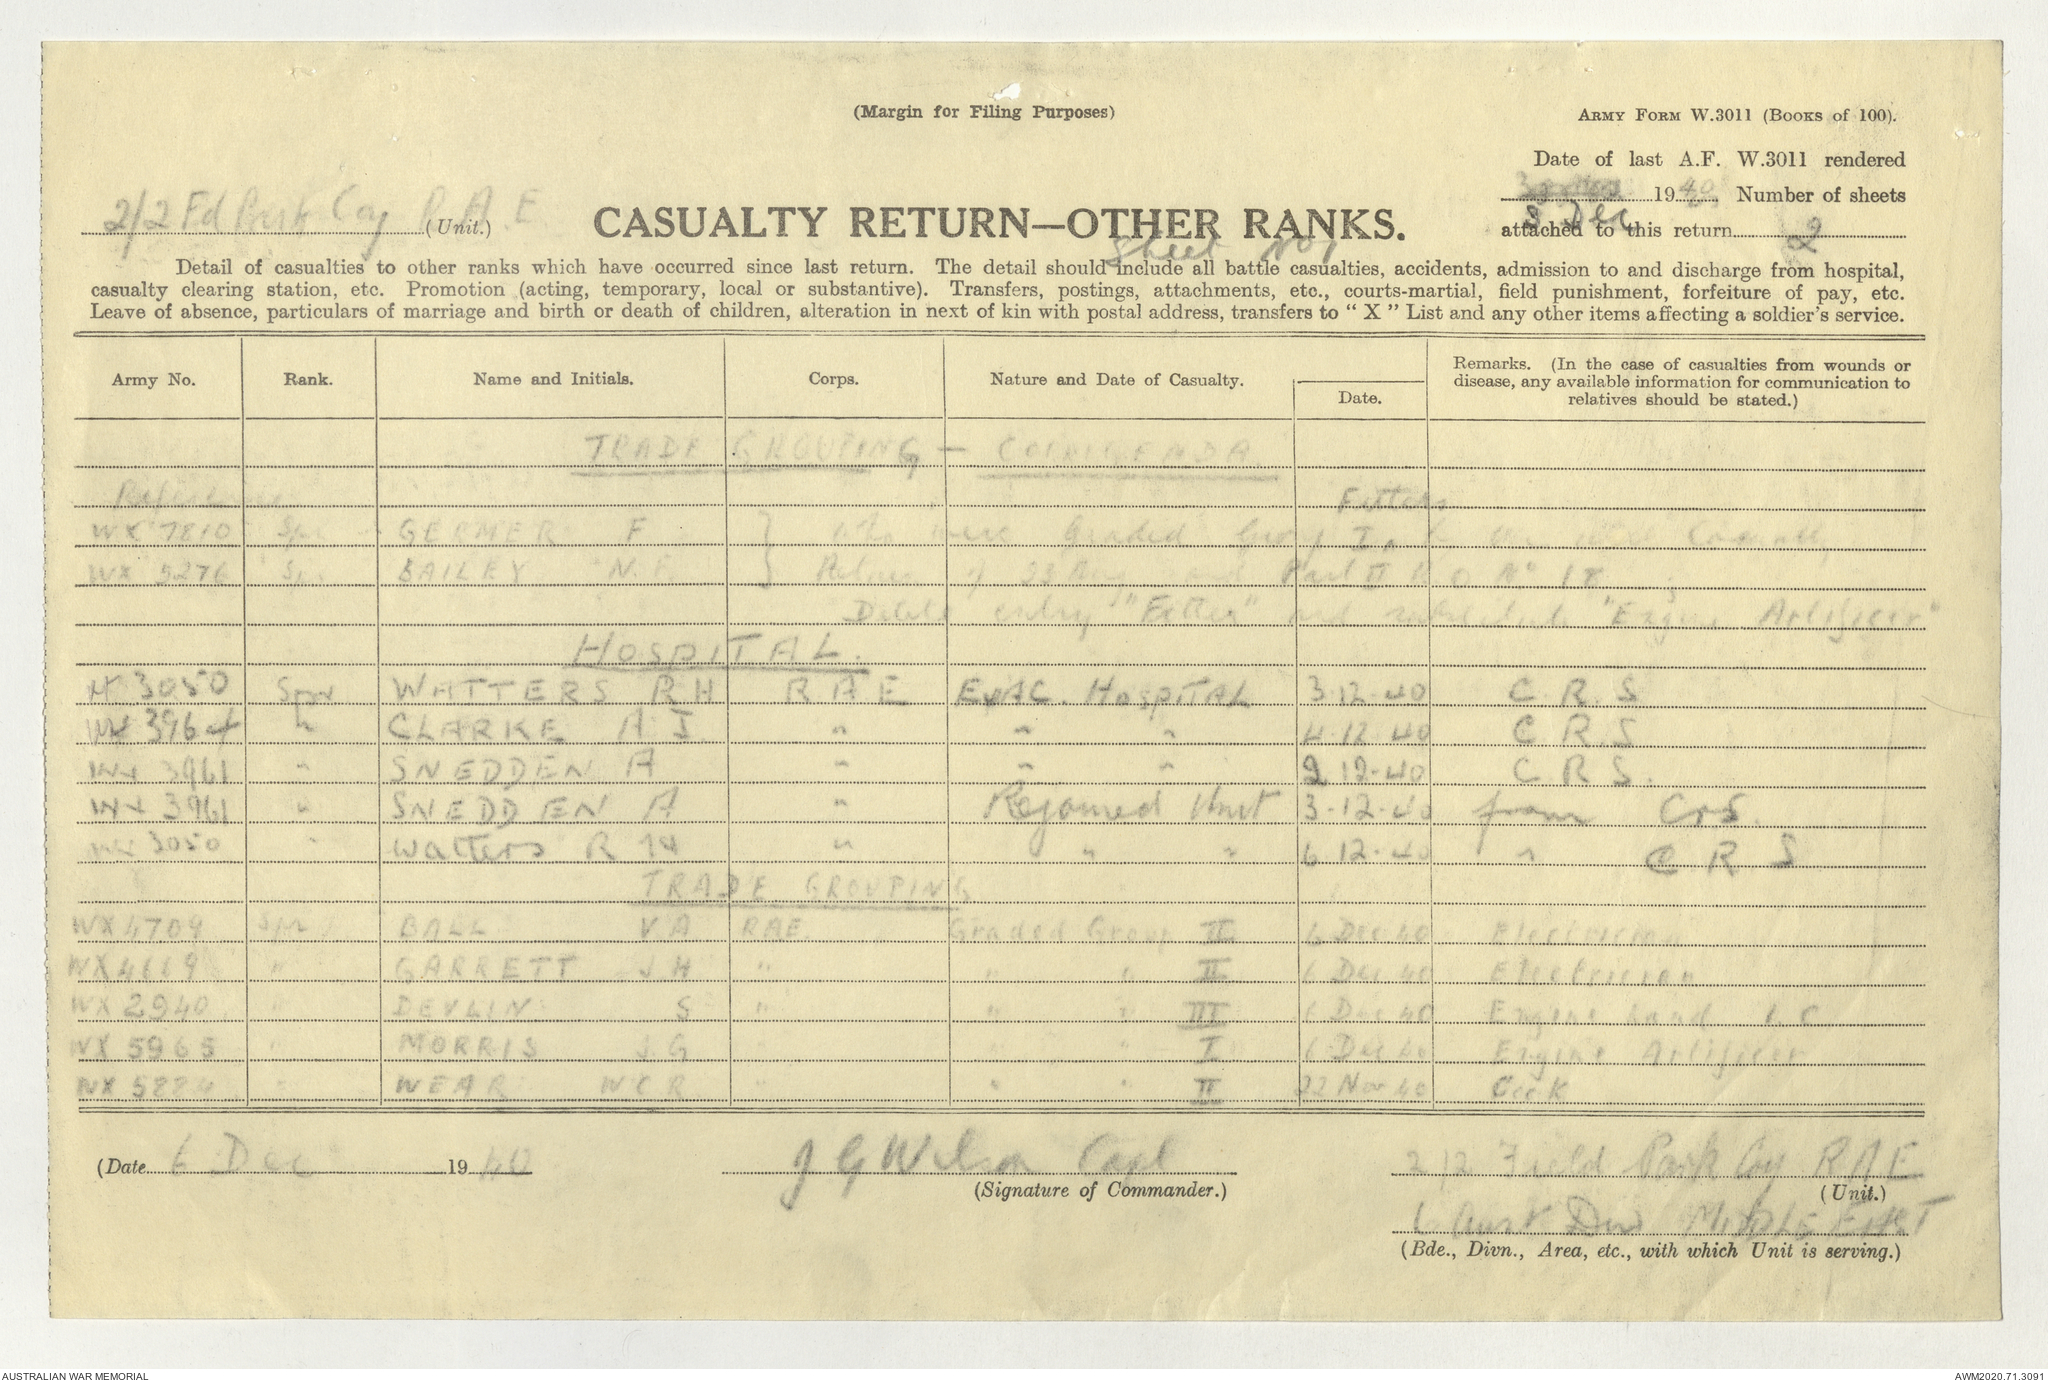 (Margin for Filing Purposes)
ARMY FORM W.3011 (BOOKS of 100).
Date of last A.F. W.3011 rendered
1940 Number of sheets
3 Dec
attached to this return 2
2/2 Fd Park Coy R.A.E
(Unit.)
CASUALTY RETURN—OTHER RANKS.
Sheet No 1
Detail of casualties to other ranks which have occurred since last return. The detail should include all battle casualties, accidents, admission to and discharge from hospital,
casualty clearing station, etc. Promotion (acting, temporary, local or substantive). Transfers, postings, attachments, etc., courts-martial, field punishment, forfeiture of pay, etc.
Leave of absence, particulars of marriage and birth or death of children, alteration in next of kin with postal address, transfers to " X " List and any other items affecting a soldier's service.
Army No. Rank. Name and Initials. Corps. Nature and Date of Casualty. Date. Remarks. (In the case of casualties from wounds or
disease, any available information for communication to
relatives should be stated.)
TRADE GROUPING — CORRIGENDA
Reference
Fitters
WX 7810 Spr GERMER F } who were Graded Group I Casualty
WX 5276 Spr BAILEY N.F. Return of 23 Aug and Part II R O No 18
Delete entry "Fitter" and substitute "Engine Artificer"
HOSPITAL.
3050 Spr WATTERS R H R A E EVAC. HOSPITAL 3-12-40 C. R. S
WX 3964 " CLARKE A J " " " 4-12-40 C R S
WX 3961 " SNEDDEN A " " " 2 12-40 C R S.
WX 3961 " SNEDDEN A " Rejoined Unit 3-12-40 from CRS.
3050 " Watters R H " " " 6 12-40 " C R S
TRADE GROUPING
WX 4709 Spr BALL V A RAE Graded Group II 6 Dec 40 Electrician
WX 4669 " GARRETT J H " " " II 6 Dec 40 Electrician
WX 2940 " DEVLIN S " " " III 6 Dec 40 Engine hand I.C
WX 5965 " MORRIS J G " " " I 6 Dec 40 Engine Artificer
WX 5224 " WEAR W C R " " " II 22 Nov 40 Cook
(Date 6 Dec 1940 J G Wilson Capt 2/2 Field Park Coy R A E
(Signature of Commander.) (Unit.)
6 Aust Div MIDDLE EAST
(Bde., Divn., Area, etc., with which Unit is serving.)
AUSTRALIAN WAR MEMORIAL AWM2020.71.3091